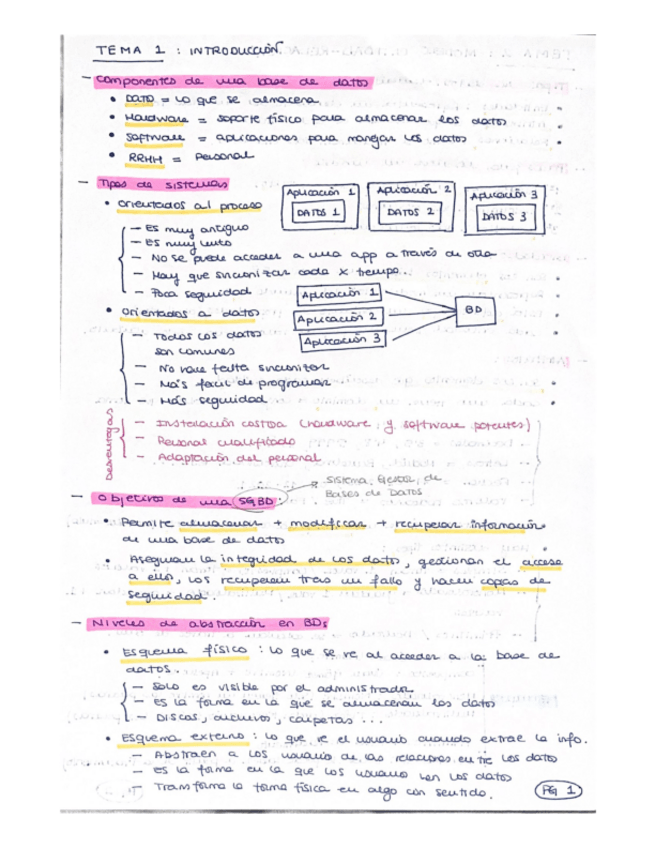 TEMA 1 : INTRODUCCIÓN.
- Componentes de una base de datos
• DATO = Lo que se almacena
• Hardware = soporte físico para almacenar los datos
• Software = aplicaciones para manejar los datos
• RRHH = Personal
- Tipos de sistemas
Aplicación 1
DATOS 1
Aplicación 2
DATOS 2
Aplicación 3
DATOS 3
• Orientados al proceso
- Es muy antiguo
- Es muy lento
- No se puede acceder a una app a través de otra
- Hay que sincronizar cada x tiempo.
- Poca seguridad
Aplicación 1
Aplicación 2
Aplicación 3
BD
• Orientados a datos
- Todos los datos
son comunes
- No hace falta sincronizar
- Más facil de programar
- Más seguridad
Desventajas
- Instalación costosa (hardware y software potentes)
- Personal cualificado
- Adaptación del personal
- Objetivos de una SGBD:
Sistema Gestor de
Bases de Datos
• Permite almacenar + modificar + recuperar información
de una base de datos
• Aseguran la integridad de los datos, gestionan el acceso
a ellos, los recuperan tras un fallo y hacen copias de
seguridad.
- Niveles de abstracción en BDs
• Esquema físico : lo que se ve al acceder a la base de
datos.
- Solo es visible por el administrador
- es la forma en la que se almacenan los datos
- Discos, archivos, carpetas ...
• Esquema externo : lo que ve el usuario cuando extrae la info.
- Abstraen a los usuarios de las relaciones entre los datos
- es la forma en la que los usuarios ven los datos
- Transforma la forma física en algo con sentido.
PG 1